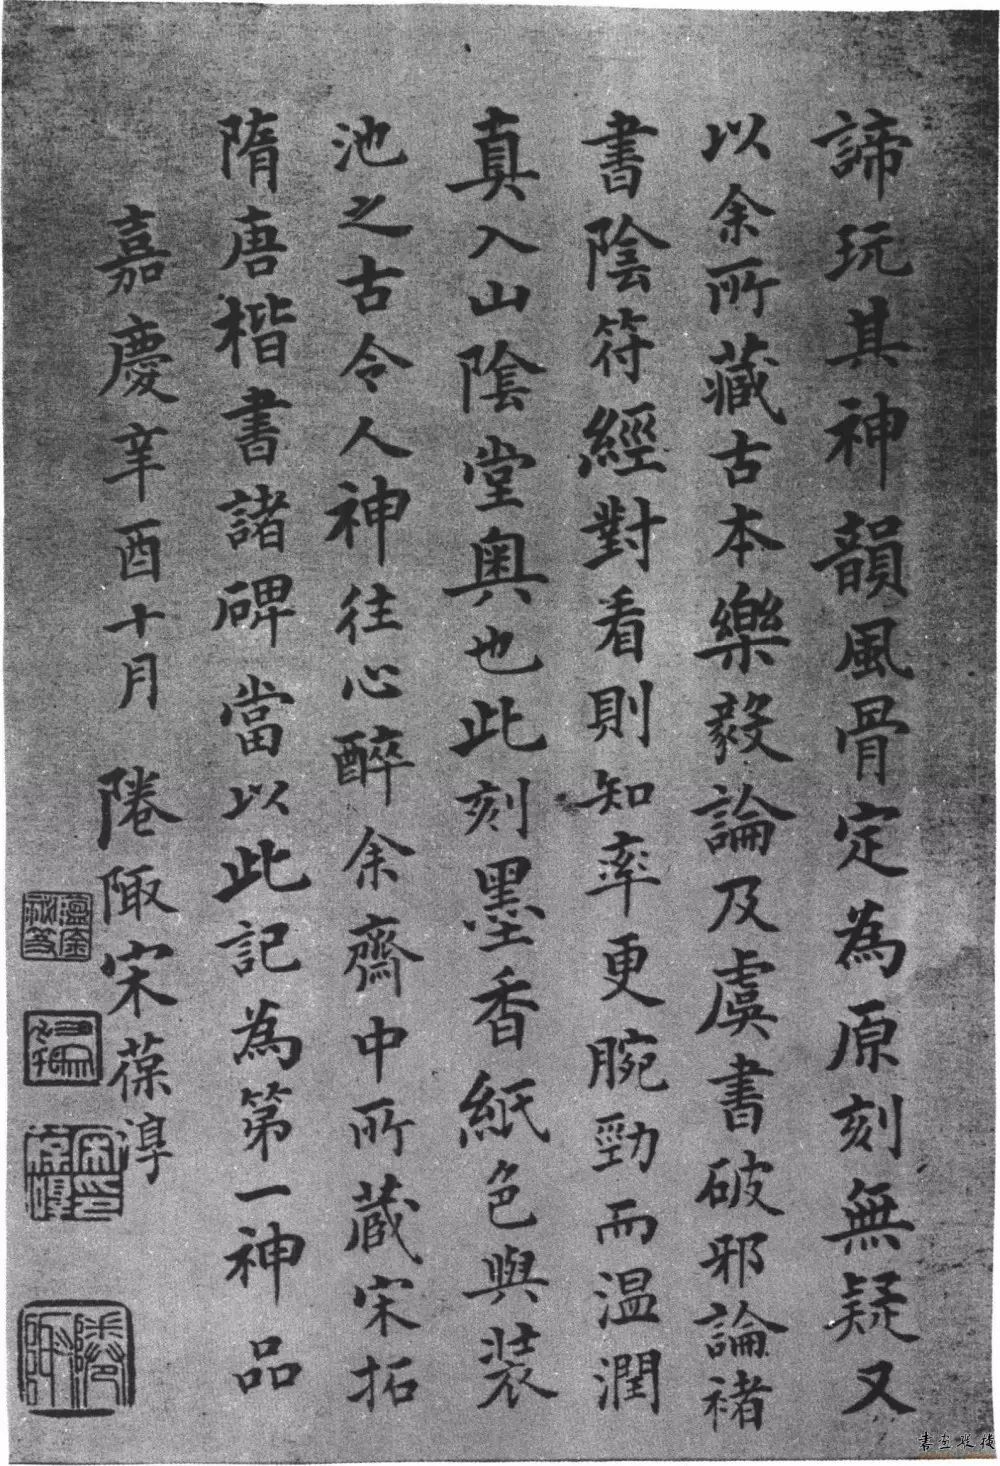 諦玩其神韻風骨定為原刻無疑又
以余所藏古本樂毅論及虞書破邪論褚
書陰符經對看則知率更腕勁而温潤
真入山陰堂奧也此刻墨香紙色與裝
池之古令人神往心醉余齋中所蔵宋拓
隋唐楷書諸碑當以此記為第一神品
嘉慶辛酉十月 陭陬宋葆淳